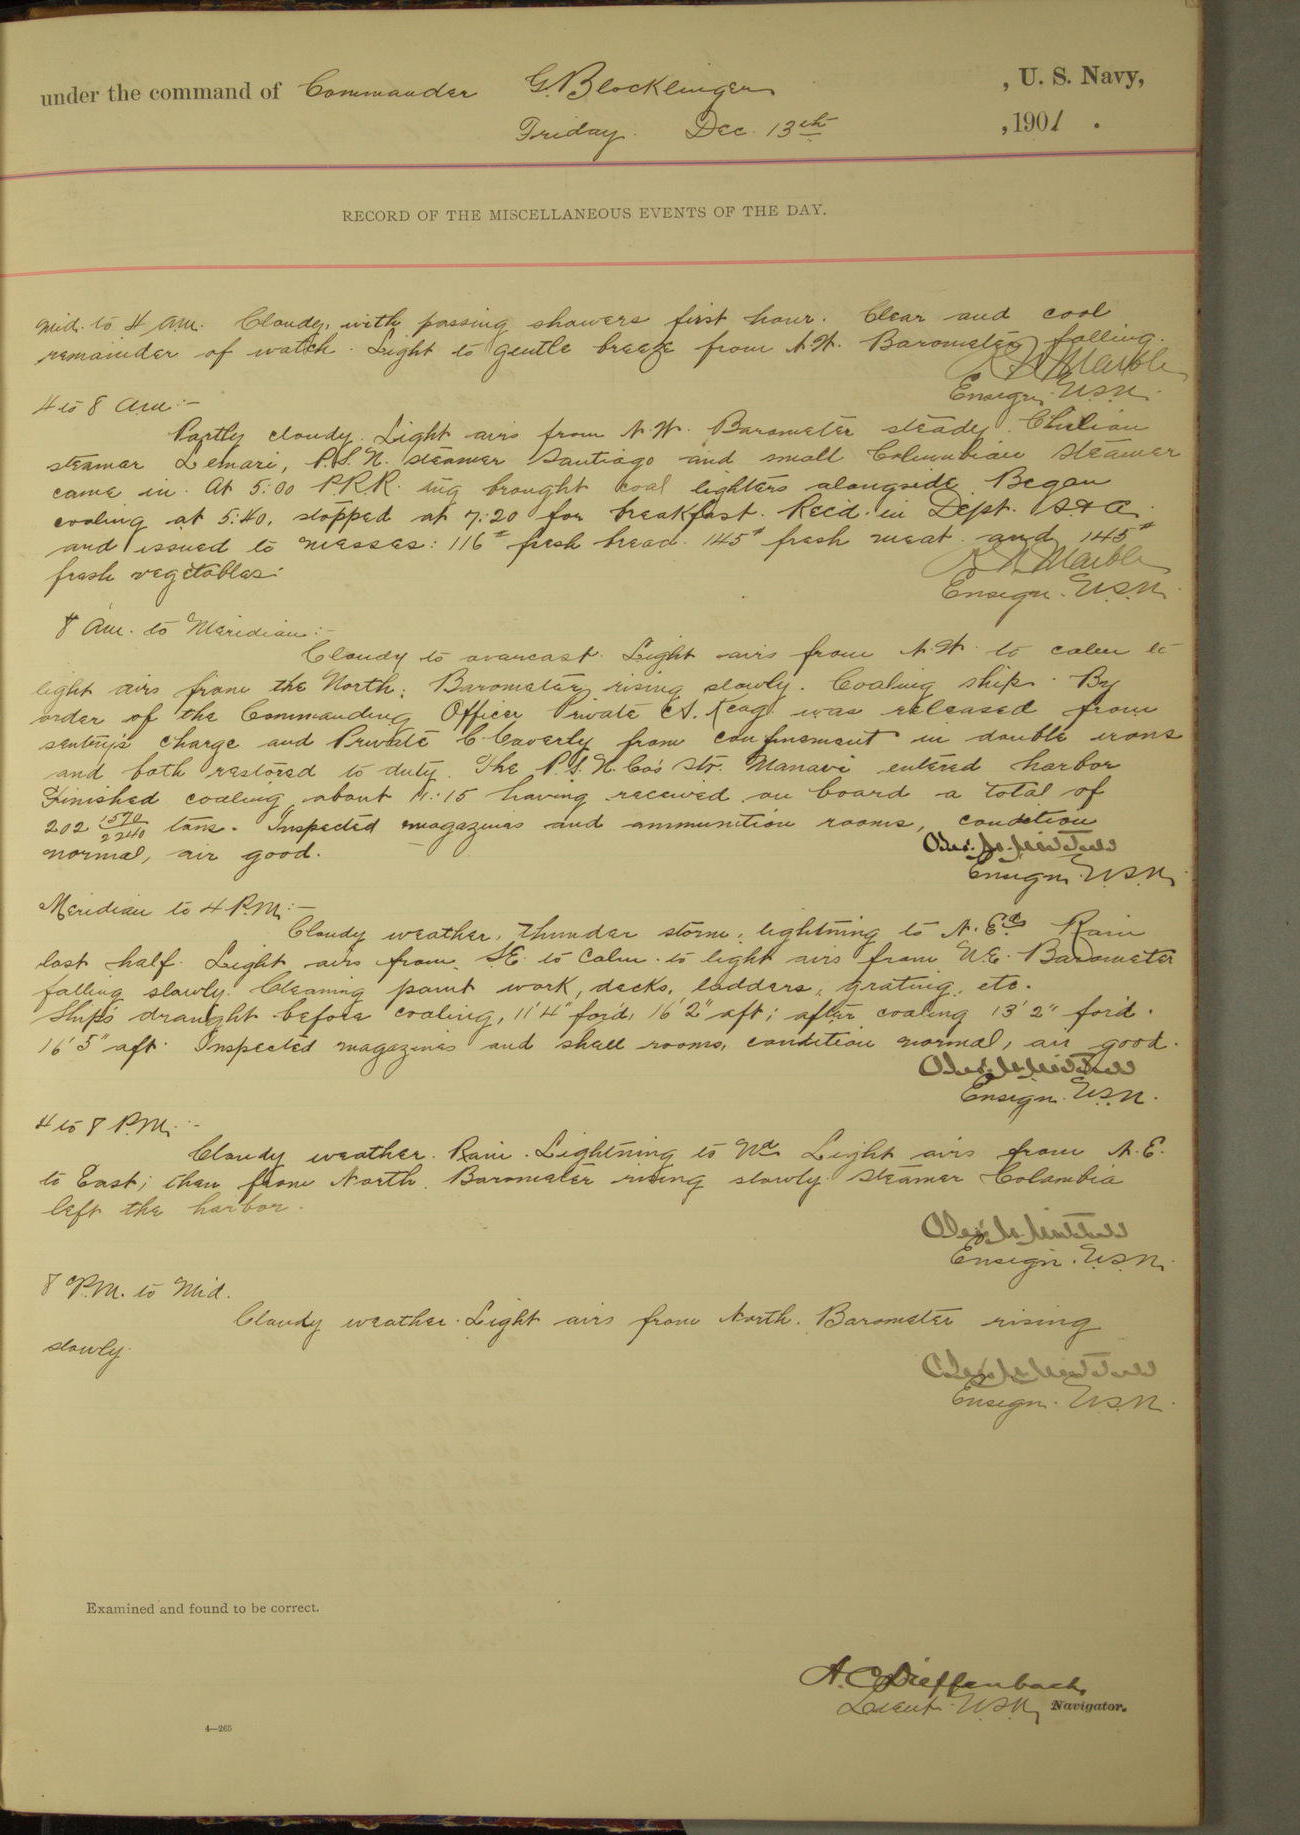 under the command of Commander G. Blocklinger, U. S. Navy,
Friday. Dec. 13th, 1901.
RECORD OF THE MISCELLANEOUS EVENTS OF THE DAY.
Mid. to 4 am. Cloudy, with passing showers first hour. Clear and cool
remainder of watch. Light to gentle breeze from N.W. Barometer falling.
Marble
Ensign. U.S.N.
4 to 8 am:-
Partly cloudy. Light airs from N.W. Barometer steady. Chilian
steamar Lemari, P.S.N. steamer Santiago and small Columbian steamer
came in. At 5:00 P.R.R. tug brought coal lighters alongside. Began
coaling at 5:40, stopped at 7:20 for breakfast. Rec'd. in Dept. S & A.
and issued to messes: 116# fresh bread. 145# fresh meat. and 145#
fresh vegetables.
Marble
Ensign. U.S.N.
8 Am. to Meridian:-
Cloudy to overcast. Light airs from N.W. to calm to
light airs from the North. Barometer rising slowly. Coaling ship. By
order of the Commanding Officer Private A. was released from
sentry's charge and Private C Caverly from confinement in double irons
and both restored to duty. The P.S.N. Co's Str. Manavi entered harbor
Finished coaling about 11:15 having received on board a total of
202 1570/2240 tons. Inspected magazines and ammunition rooms, condition
normal, air good.
Ensign. U.S.N.
Meridian to 4 P.M:-
Cloudy weather, thunder storm, lightning to N.E'd. Rain
last half. Light airs from SE to Calm to light airs from N.E. Barometer
falling slowly. Cleaning paint work, decks, ladders, grating, etc.
Ship's draught before coaling, 11' 4" for'd, 16' 2" aft; after coaling 13' 2" for'd.
16' 5" aft. Inspected magazines and shell rooms, condition normal, air good.
Ensign. U.S.N.
4 to 8 P.M:-
Cloudy weather. Rain. Lightning to Nd. Light airs from N.E.
to East; then from North. Barometer rising slowly. Steamer Colombia
left the harbor.
Ensign. U.S.N.
8 P.M. to Mid.
Cloudy weather. Light airs from North. Barometer rising
slowly.
Ensign. U.S.N.
Examined and found to be correct.
A. C. Dieffenbach,
Lieut. U.S.N., Navigator.
4—265